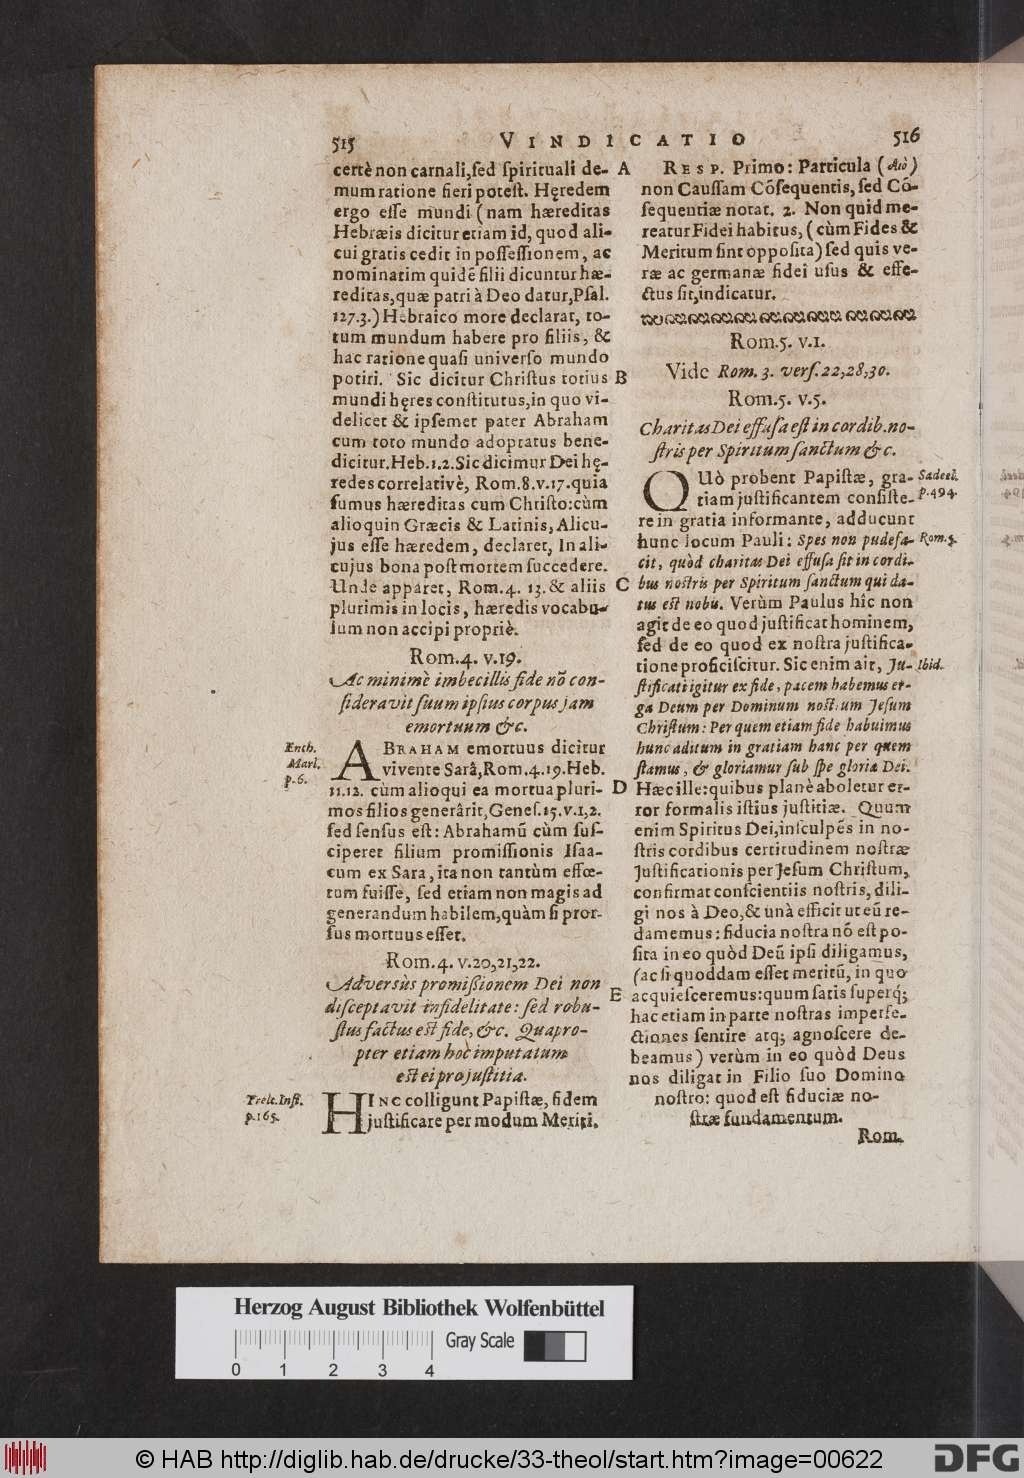 515
VINDICATIO
516
certè non carnali, sed spirituali de-
mum ratione fieri potest. Hęredem
ergo esse mundi (nam hæreditas
Hebræis dicitur etiam id, quod ali-
cui gratis cedit in possessionem, ac
nominatim quidē filii dicuntur hæ-
reditas, quæ patri à Deo datur, Psal.
127.3.) Hebraico more declarat, to-
tum mundum habere pro filiis, &
hac ratione quasi universo mundo
potiri. Sic dicitur Christus totius
mundi hęres constitutus, in quo vi-
delicet & ipsemet pater Abraham
cum toto mundo adoptatus bene-
dicitur. Heb.1.2. Sic dicimur Dei hę-
redes correlativè, Rom.8.v.17. quia
sumus hæreditas cum Christo: cùm
alioquin Græcis & Latinis, Alicu-
jus esse hæredem, declaret, In ali-
cujus bona post mortem succedere.
Unde apparet, Rom.4. 13. & aliis
plurimis in locis, hæredis vocabu-
lum non accipi propriè.
Rom.4. v.19.
Ac minimè imbecillis fide nō con-
sideravit suum ipsius corpus jam
emortuum &c.
Ench.
Marl.
p.6.
ABRAHAM emortuus dicitur
vivente Sarâ, Rom.4.19. Heb.
11.12. cùm alioqui ea mortua pluri-
mos filios generârit, Genes.15.v.1,2.
sed sensus est: Abrahamū cùm sus-
ciperet filium promissionis Isaa-
cum ex Sara, ita non tantùm effœ-
tum fuisse, sed etiam non magis ad
generandum habilem, quàm si pror-
sus mortuus esset.
Rom.4. v.20,21,22.
Adversus promißionem Dei non
disceptavit infidelitate: sed robu-
stus factus est fide, &c. Quapro-
pter etiam hoc imputatum
est ei pro justitia.
Trelc. Inst.
p.165.
HINC colligunt Papistæ, fidem
justificare per modum Meriti.
A
B
C
D
E
RESP. Primo: Particula (διὸ)
non Caussam Cōsequentis, sed Cō-
sequentiæ notat. 2. Non quid me-
reatur Fidei habitus, (cùm Fides &
Meritum sint opposita) sed quis ve-
ræ ac germanæ fidei usus & effe-
ctus sit, indicatur.
Rom.5. v.1.
Vide Rom. 3. vers. 22,28,30.
Rom.5. v.5.
Charitas Dei effusa est in cordib. no-
stris per Spiritum sanctum &c.
QUò probent Papistæ, gra-
tiam justificantem consiste-
re in gratia informante, adducunt
hunc locum Pauli: Spes non pudefa-
cit, quòd charitas Dei effusa sit in cordi-
bus nostris per Spiritum sanctum qui da-
tus est nobis. Verùm Paulus hîc non
agit de eo quod justificat hominem,
sed de eo quod ex nostra justifica-
tione proficiscitur. Sic enim ait, Ju-
stificati igitur ex fide, pacem habemus er-
ga Deum per Dominum nostrum Jesum
Christum: Per quem etiam fide habuimus
hunc aditum in gratiam hanc per quem
stamus, & gloriamur sub spe gloria Dei.
Hæc ille: quibus planè aboletur er-
ror formalis istius justitiæ. Quum
enim Spiritus Dei, insculpēs in no-
stris cordibus certitudinem nostræ
Justificationis per Jesum Christum,
confirmat conscientiis nostris, dili-
gi nos à Deo, & unà efficit ut eū re-
damemus: fiducia nostra nō est po-
sita in eo quòd Deū ipsi diligamus,
(ac si quoddam esset meritū, in quo
acquiesceremus: quum satis superq;
hac etiam in parte nostras imperfe-
ctiones sentire atq; agnoscere de-
beamus) verùm in eo quòd Deus
nos diligat in Filio suo Domino
nostro: quod est fiduciæ no-
stræ fundamentum.
Rom.
Sadeel.
p.494.
Rom.5.
Ibid.
Herzog August Bibliothek Wolfenbüttel
Gray Scale
0 1 2 3 4
© HAB http://diglib.hab.de/drucke/33-theol/start.htm?image=00622
DFG